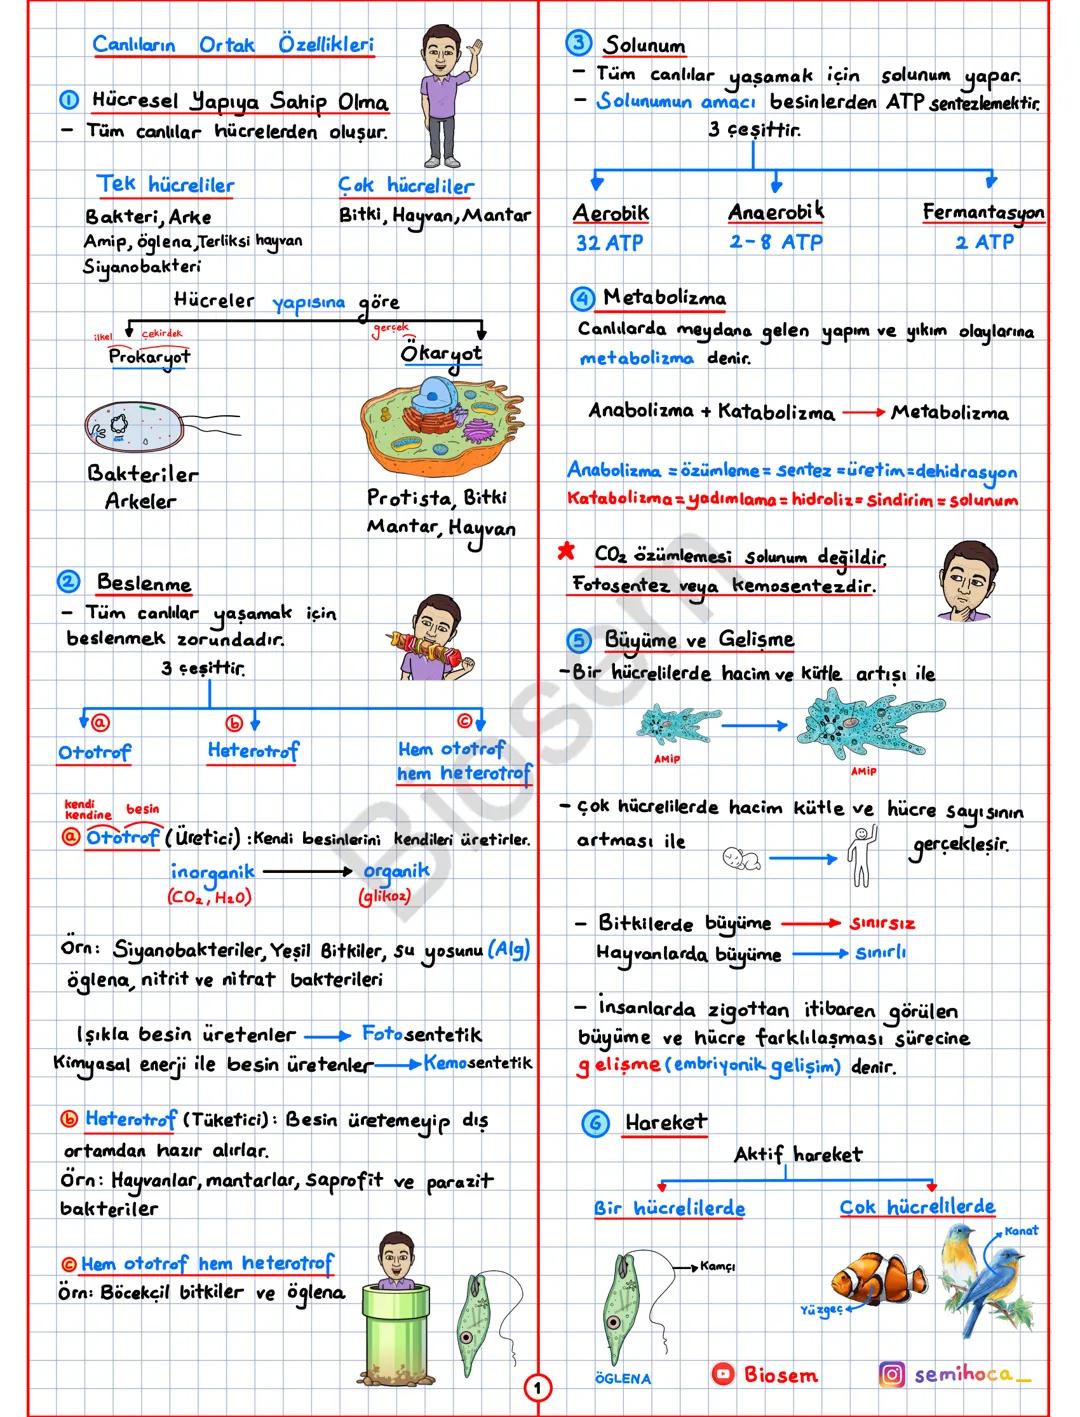 Canlıların Ortak Özellikleri
1 Hücresel Yapıya Sahip Olma
- Tüm canlılar hücrelerden oluşur.
Tek hücreliler
Bakteri, Arke
Amip, öglena, Terliksi hayvan
Siyanobakteri
Çok hücreliler
Bitki, Hayvan, Mantar
Hücreler yapısına göre
ilkel çekirdek
Prokaryot
gerçek
Ökaryot
Bakteriler
Arkeler
Protista, Bitki
Mantar, Hayvan
2 Beslenme
- Tüm canlılar yaşamak için
beslenmek zorundadır.
3 çeşittir.
a
Ototrof
b
Heterotrof
c
Hem ototrof
hem heterotrof
kendi
kendine besin
a Ototrof (Üretici) : Kendi besinlerini kendileri üretirler.
inorganik → organik
(CO₂, H₂O) (glikoz)
Örn: Siyanobakteriler, Yeşil Bitkiler, su yosunu (Alg)
öglena, nitrit ve nitrat bakterileri
Işıkla besin üretenler → Fotosentetik
Kimyasal enerji ile besin üretenler → Kemosentetik
b Heterotrof (Tüketici): Besin üretemeyip dış
ortamdan hazır alırlar.
Örn: Hayvanlar, mantarlar, saprofit ve parazit
bakteriler
c Hem ototrof hem heterotrof
Örn: Böcekçil bitkiler ve öglena
3 Solunum
- Tüm canlılar yaşamak için solunum yapar.
- Solunumun amacı besinlerden ATP sentezlemektir.
3 çeşittir.
Aerobik
32 ATP
Anaerobik
2-8 ATP
Fermantasyon
2 ATP
4 Metabolizma
Canlılarda meydana gelen yapım ve yıkım olaylarına
metabolizma denir.
Anabolizma + Katabolizma → Metabolizma
Anabolizma = özümleme = sentez = üretim = dehidrasyon
Katabolizma = yadımlama = hidroliz = sindirim = solunum
* CO₂ özümlemesi solunum değildir.
Fotosentez veya kemosentezdir.
5 Büyüme ve Gelişme
- Bir hücrelilerde hacim ve kütle artışı ile
AMİP
AMİP
- çok hücrelilerde hacim kütle ve hücre sayısının
artması ile gerçekleşir.
- Bitkilerde büyüme → sınırsız
Hayvanlarda büyüme → sınırlı
- İnsanlarda zigottan itibaren görülen
büyüme ve hücre farklılaşması sürecine
gelişme (embriyonik gelişim) denir.
6 Hareket
Aktif hareket
Bir hücrelilerde
Kamçı
ÖGLENA
Çok hücrelilerde
Kanat
Yüzgeç
Biosem
semihoca_
1
Biosem